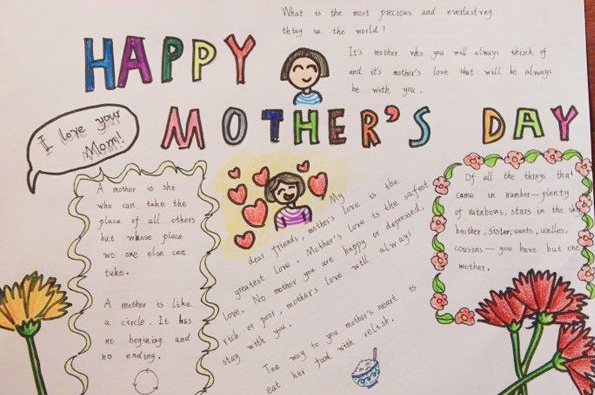 What is the most precious and everlasting
thing in the world?
It's mother who you will always think of
and it's mother's love that will be always
be with you.
HAPPY
MOTHER'S DAY
I love your
Mom!
A mother is she
who can take the
place of all others
but whose place
wo one else can
take.
A mother is like
a circle. It has
no begining and
no ending.
My
dear friends, mother's love is the
greatest love. Mother's love is the safest
love. No mother you are happy or depressed,
rich or poor, mother's love will always
stay with you.
The way to you mother's heart is
eat her fund with relish.
Of all the things that
came in number—plenty
of rainbows, stars in the sky
brother, sister, aunts, unlles,
cousins—you have but one
mother.